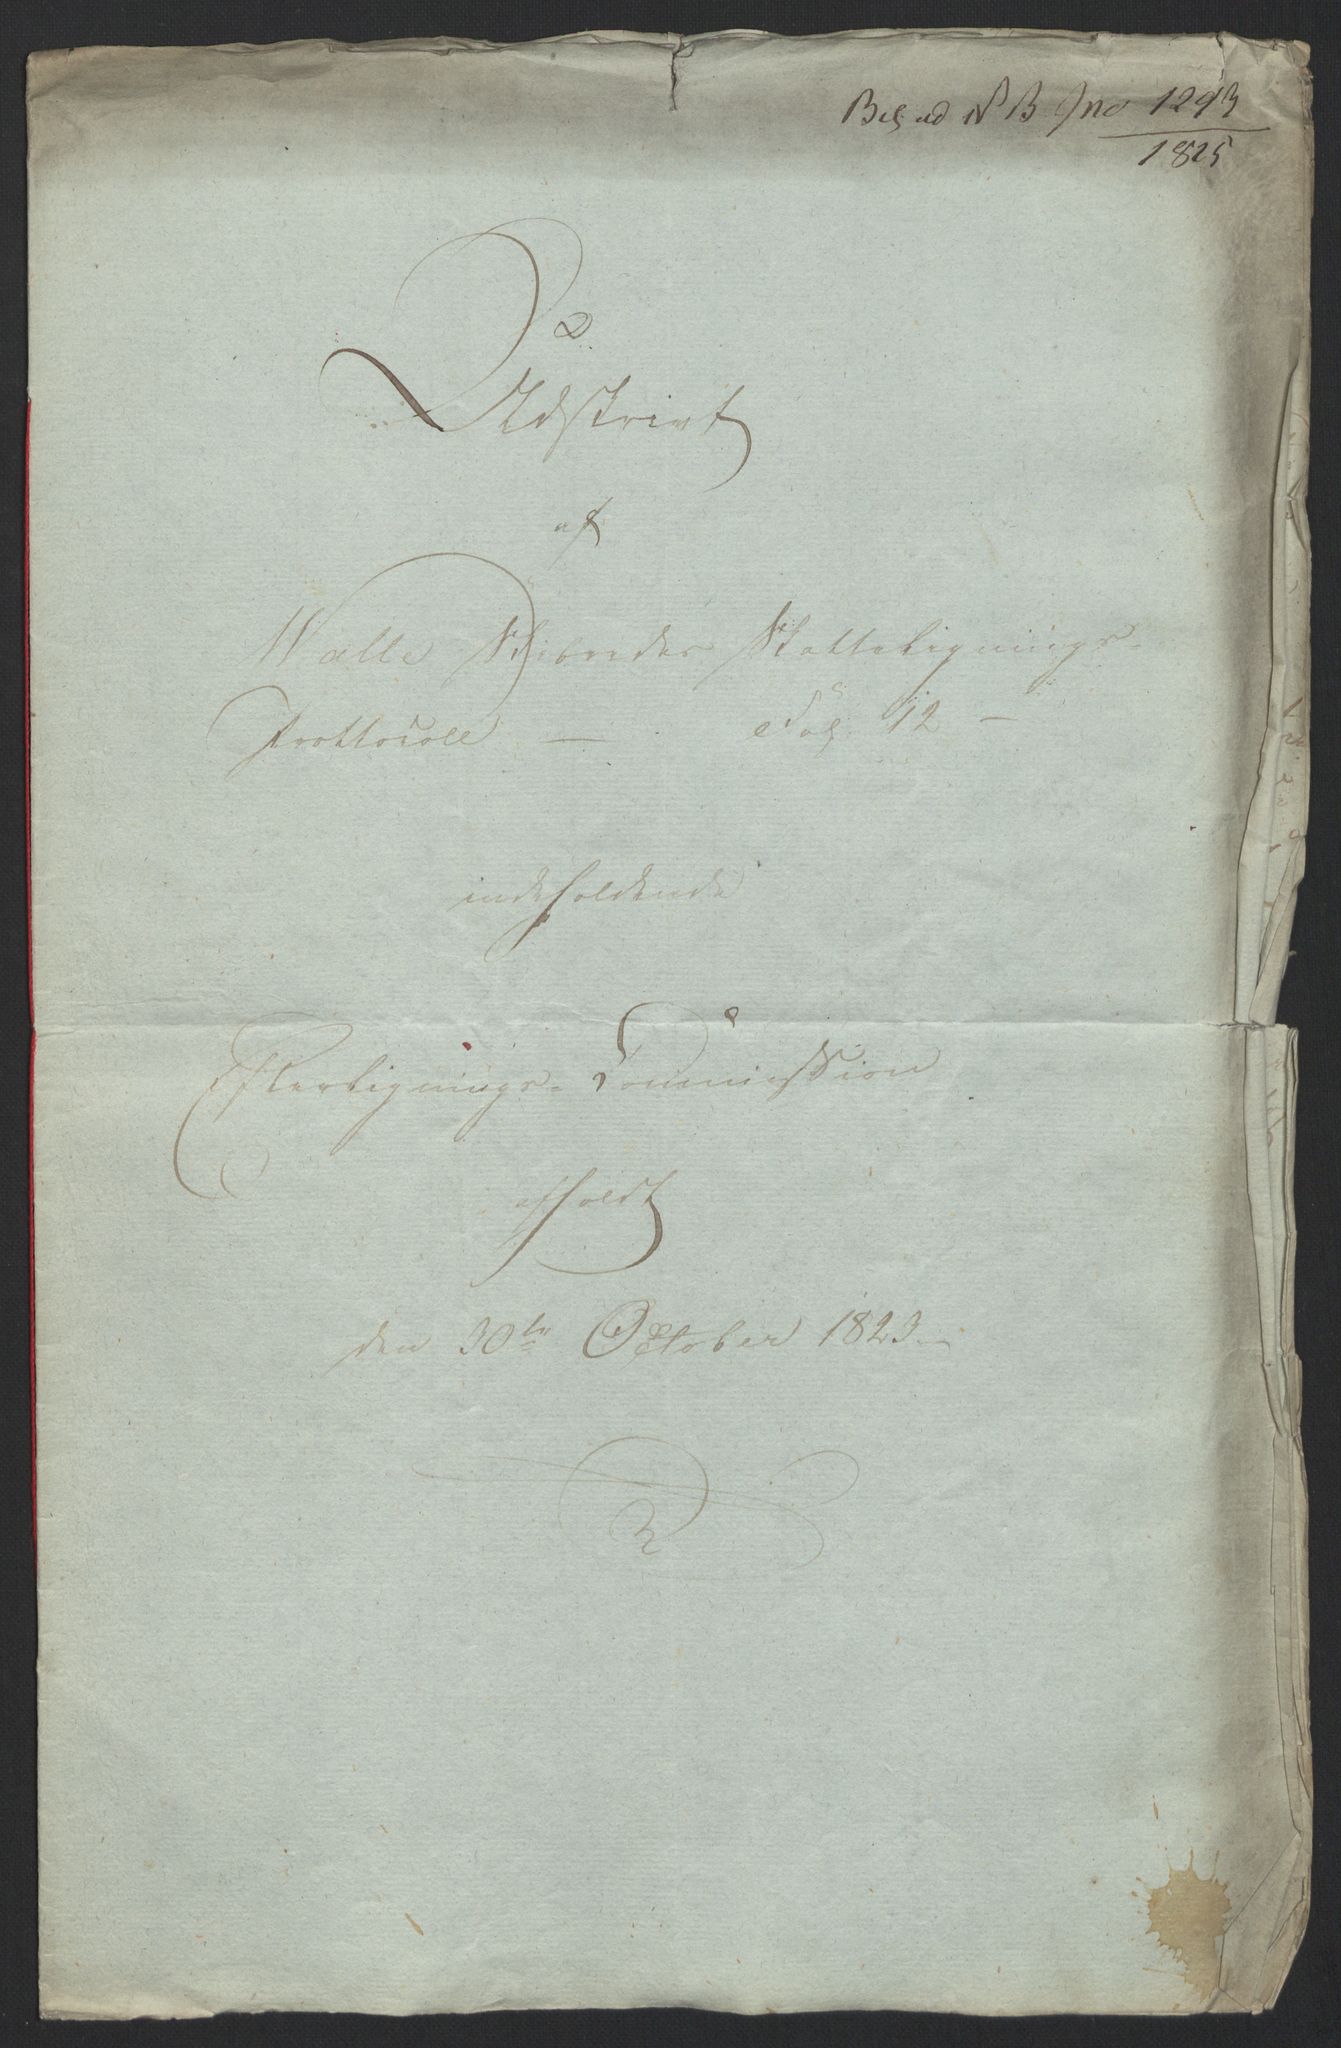 Bes ad NB Jno 1293
1825
Udskrivt
af
Walle Skibredes Skattelignings-
Prottocoll — Fol. 12 —
indeholdende
Efterlignings-Commission
afholdt
den 30te October 1823